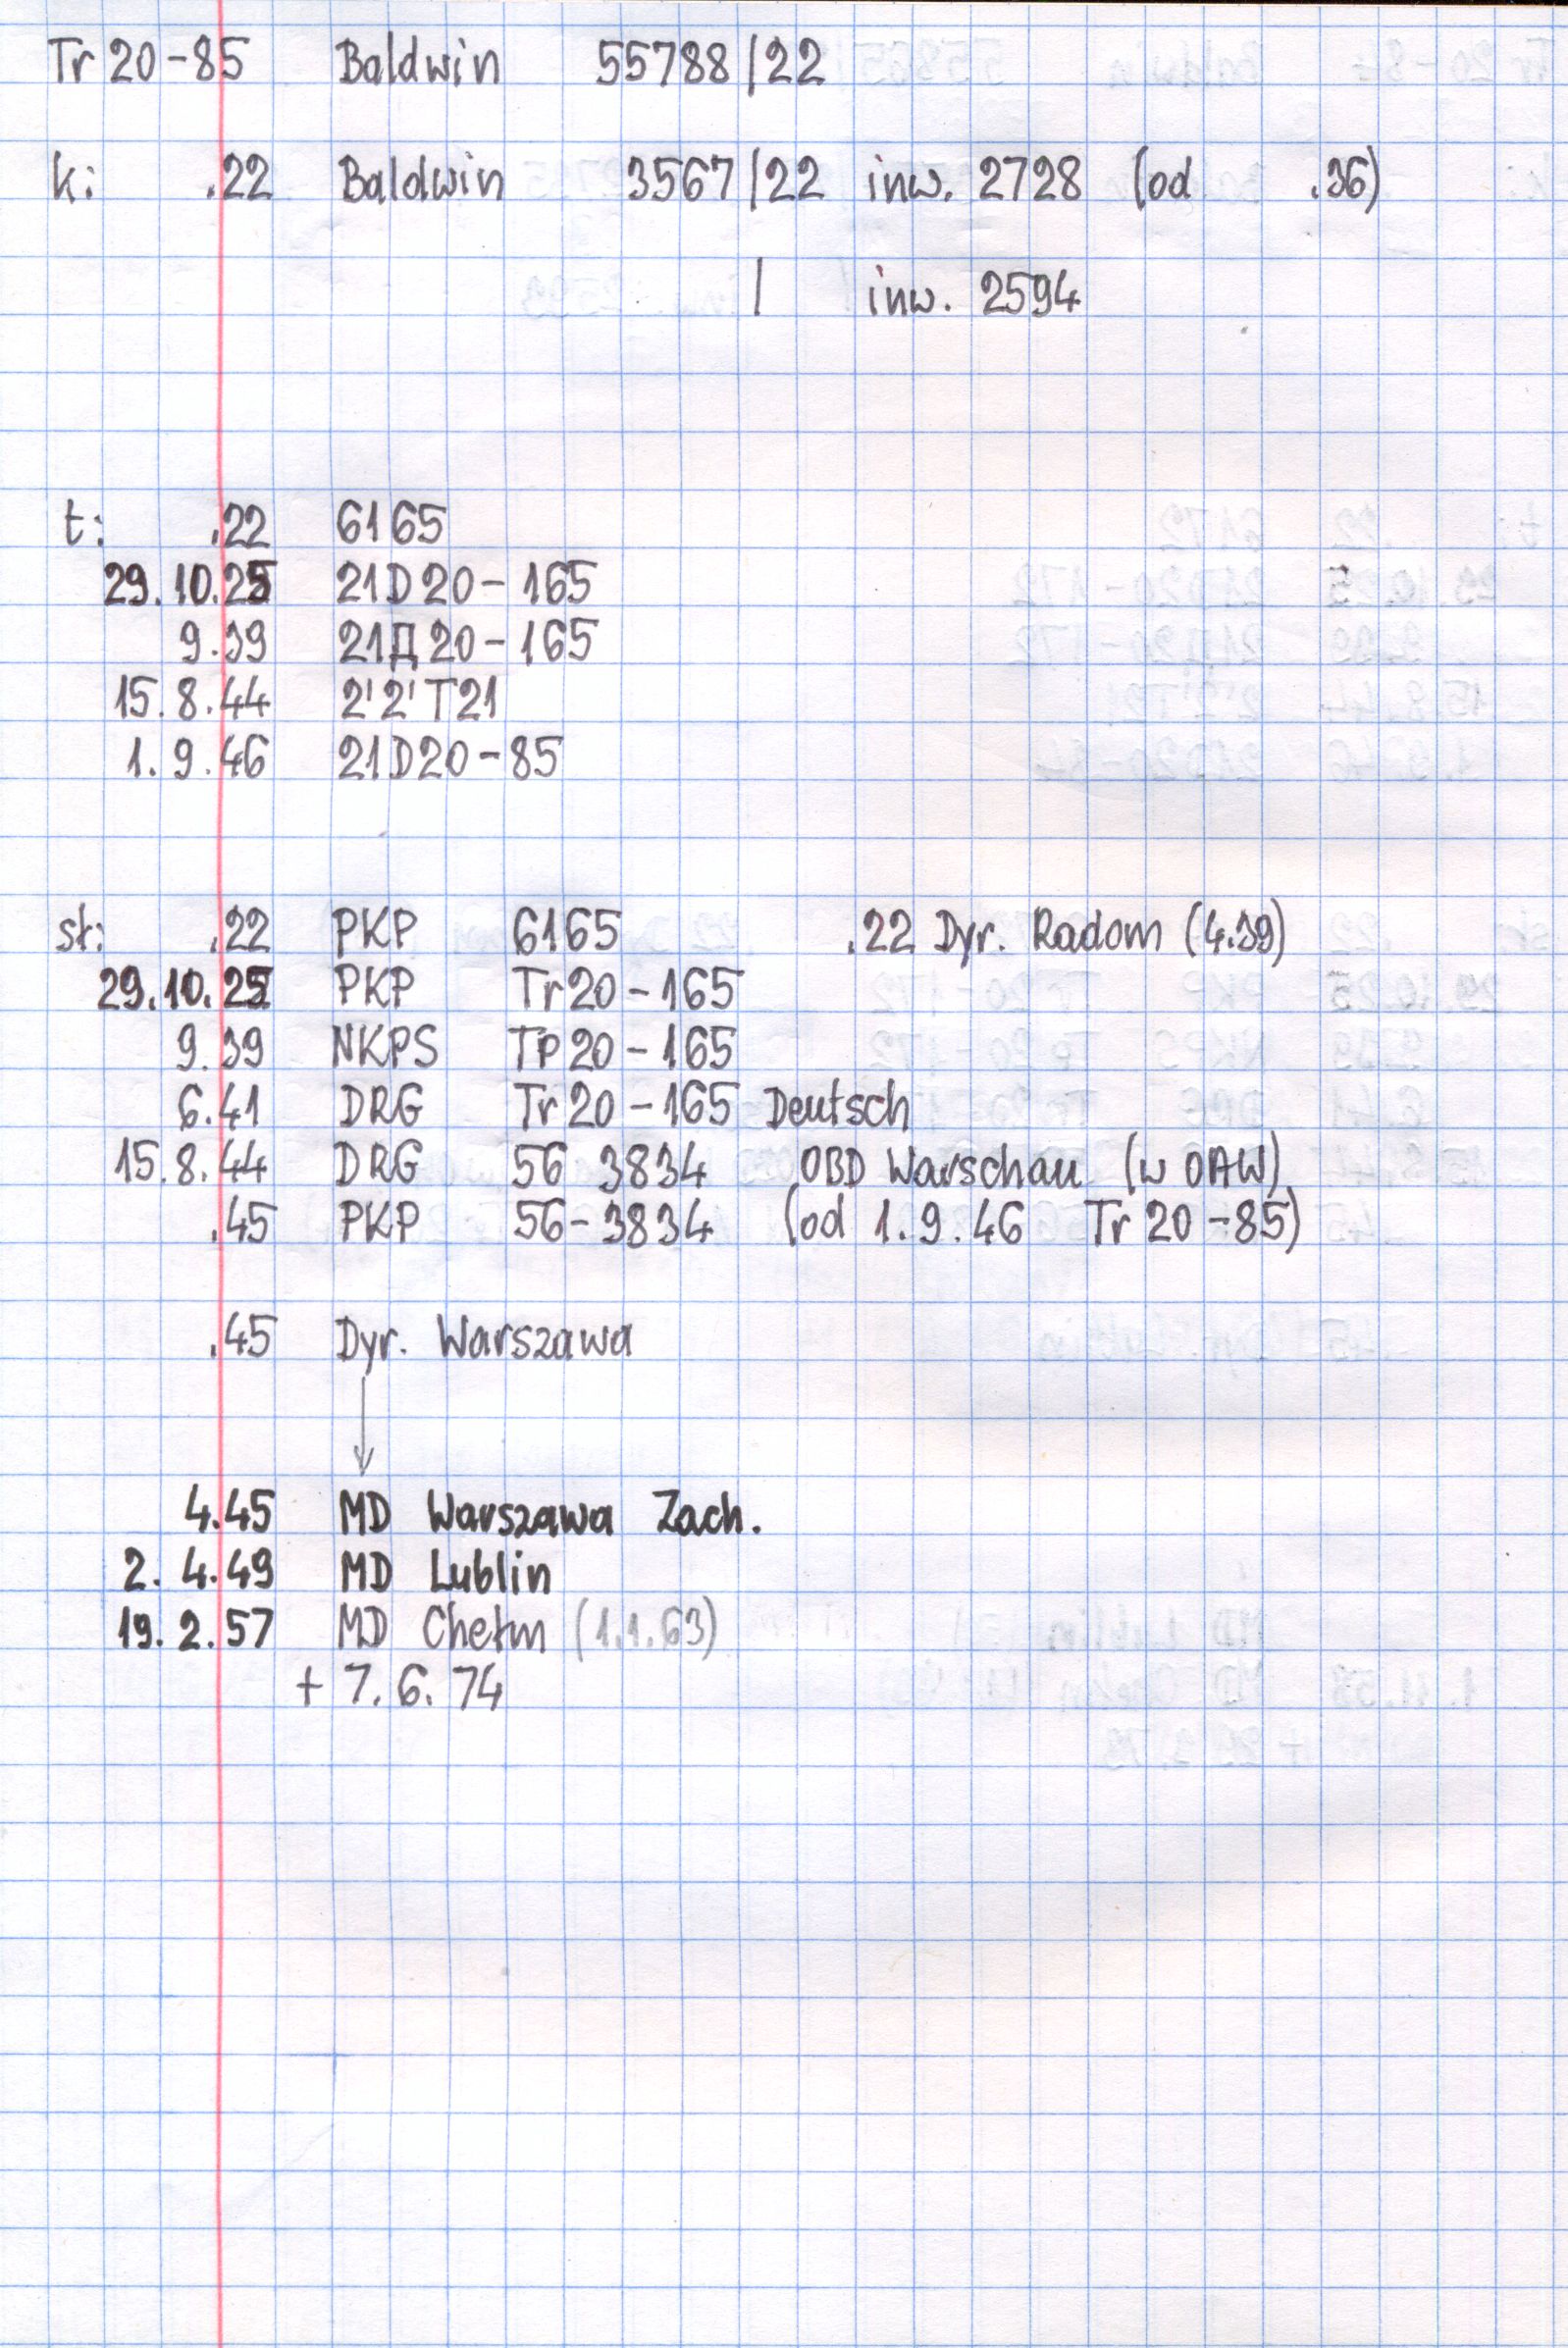 Tr 20-85 Baldwin 55788/22
k: .22 Baldwin 3567/22 inw. 2728 (od .36)
/ inw. 2594
t: .22 6165
29.10.25 21D20-165
9.39 21Д20-165
15.8.44 2'2'T21
1.9.46 21D20-85
st: .22 PKP 6165 .22 Dyr. Radom (4.39)
29.10.25 PKP Tr20-165
9.39 NKPS TP20-165
6.41 DRG Tr20-165 Deutsch
15.8.44 DRG 56 3834 OBD Warschau (w OAW)
.45 PKP 56-3834 (od 1.9.46 Tr 20-85)
.45 Dyr. Warszawa
4.45 MD Warszawa Zach.
2. 4.49 MD Lublin
19. 2.57 MD Chełm (1.1.63)
+ 7.6.74